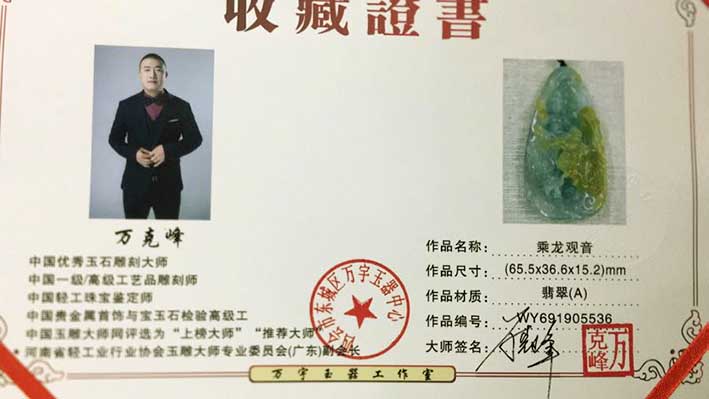 收藏證書
万克峰
中国优秀玉石雕刻大师
中国一级/高级工艺品雕刻师
中国轻工珠宝鉴定师
中国贵金属首饰与宝玉石检验高级工
中国玉雕大师网评选为“上榜大师”“推荐大师”
*河南省轻工业行业协会玉雕大师专业委员会(广东)副会长
四会市东城区万宇玉器中心
作品名称: 乘龙观音
作品尺寸: (65.5x36.6x15.2)mm
作品材质: 翡翠(A)
作品编号: WY691905536
大师签名: 万克峰
万克峰
万宇玉器工作室